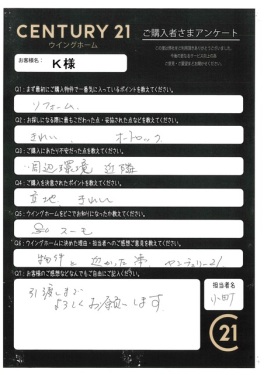 CENTURY 21
ウイングホーム
ご購入者さまアンケート
お客様名： K様
Q1：まず最初にご購入物件で一番気に入っているポイントを教えてください。
リフォーム、
Q2：お探しになる際に最もこだわった点・妥協された点などを教えてください。
きれい オートロック
Q3：ご購入にあたり不安だった点を教えてください。
周辺環境 近隣
Q4：ご購入を決意されたポイントを教えてください。
立地、きれい
Q5：ウイングホームをどこでお知りになったか教えてください。
スーモ
Q6：ウイングホームに決めた理由・担当者へのご感想ご意見を教えてください。
物件と 近かった事、センチュリー21
Q7：お客様のご感想などなんでもご自由にご記入ください。
引渡しまで
よろしくお願いします
担当者名
小町
C21